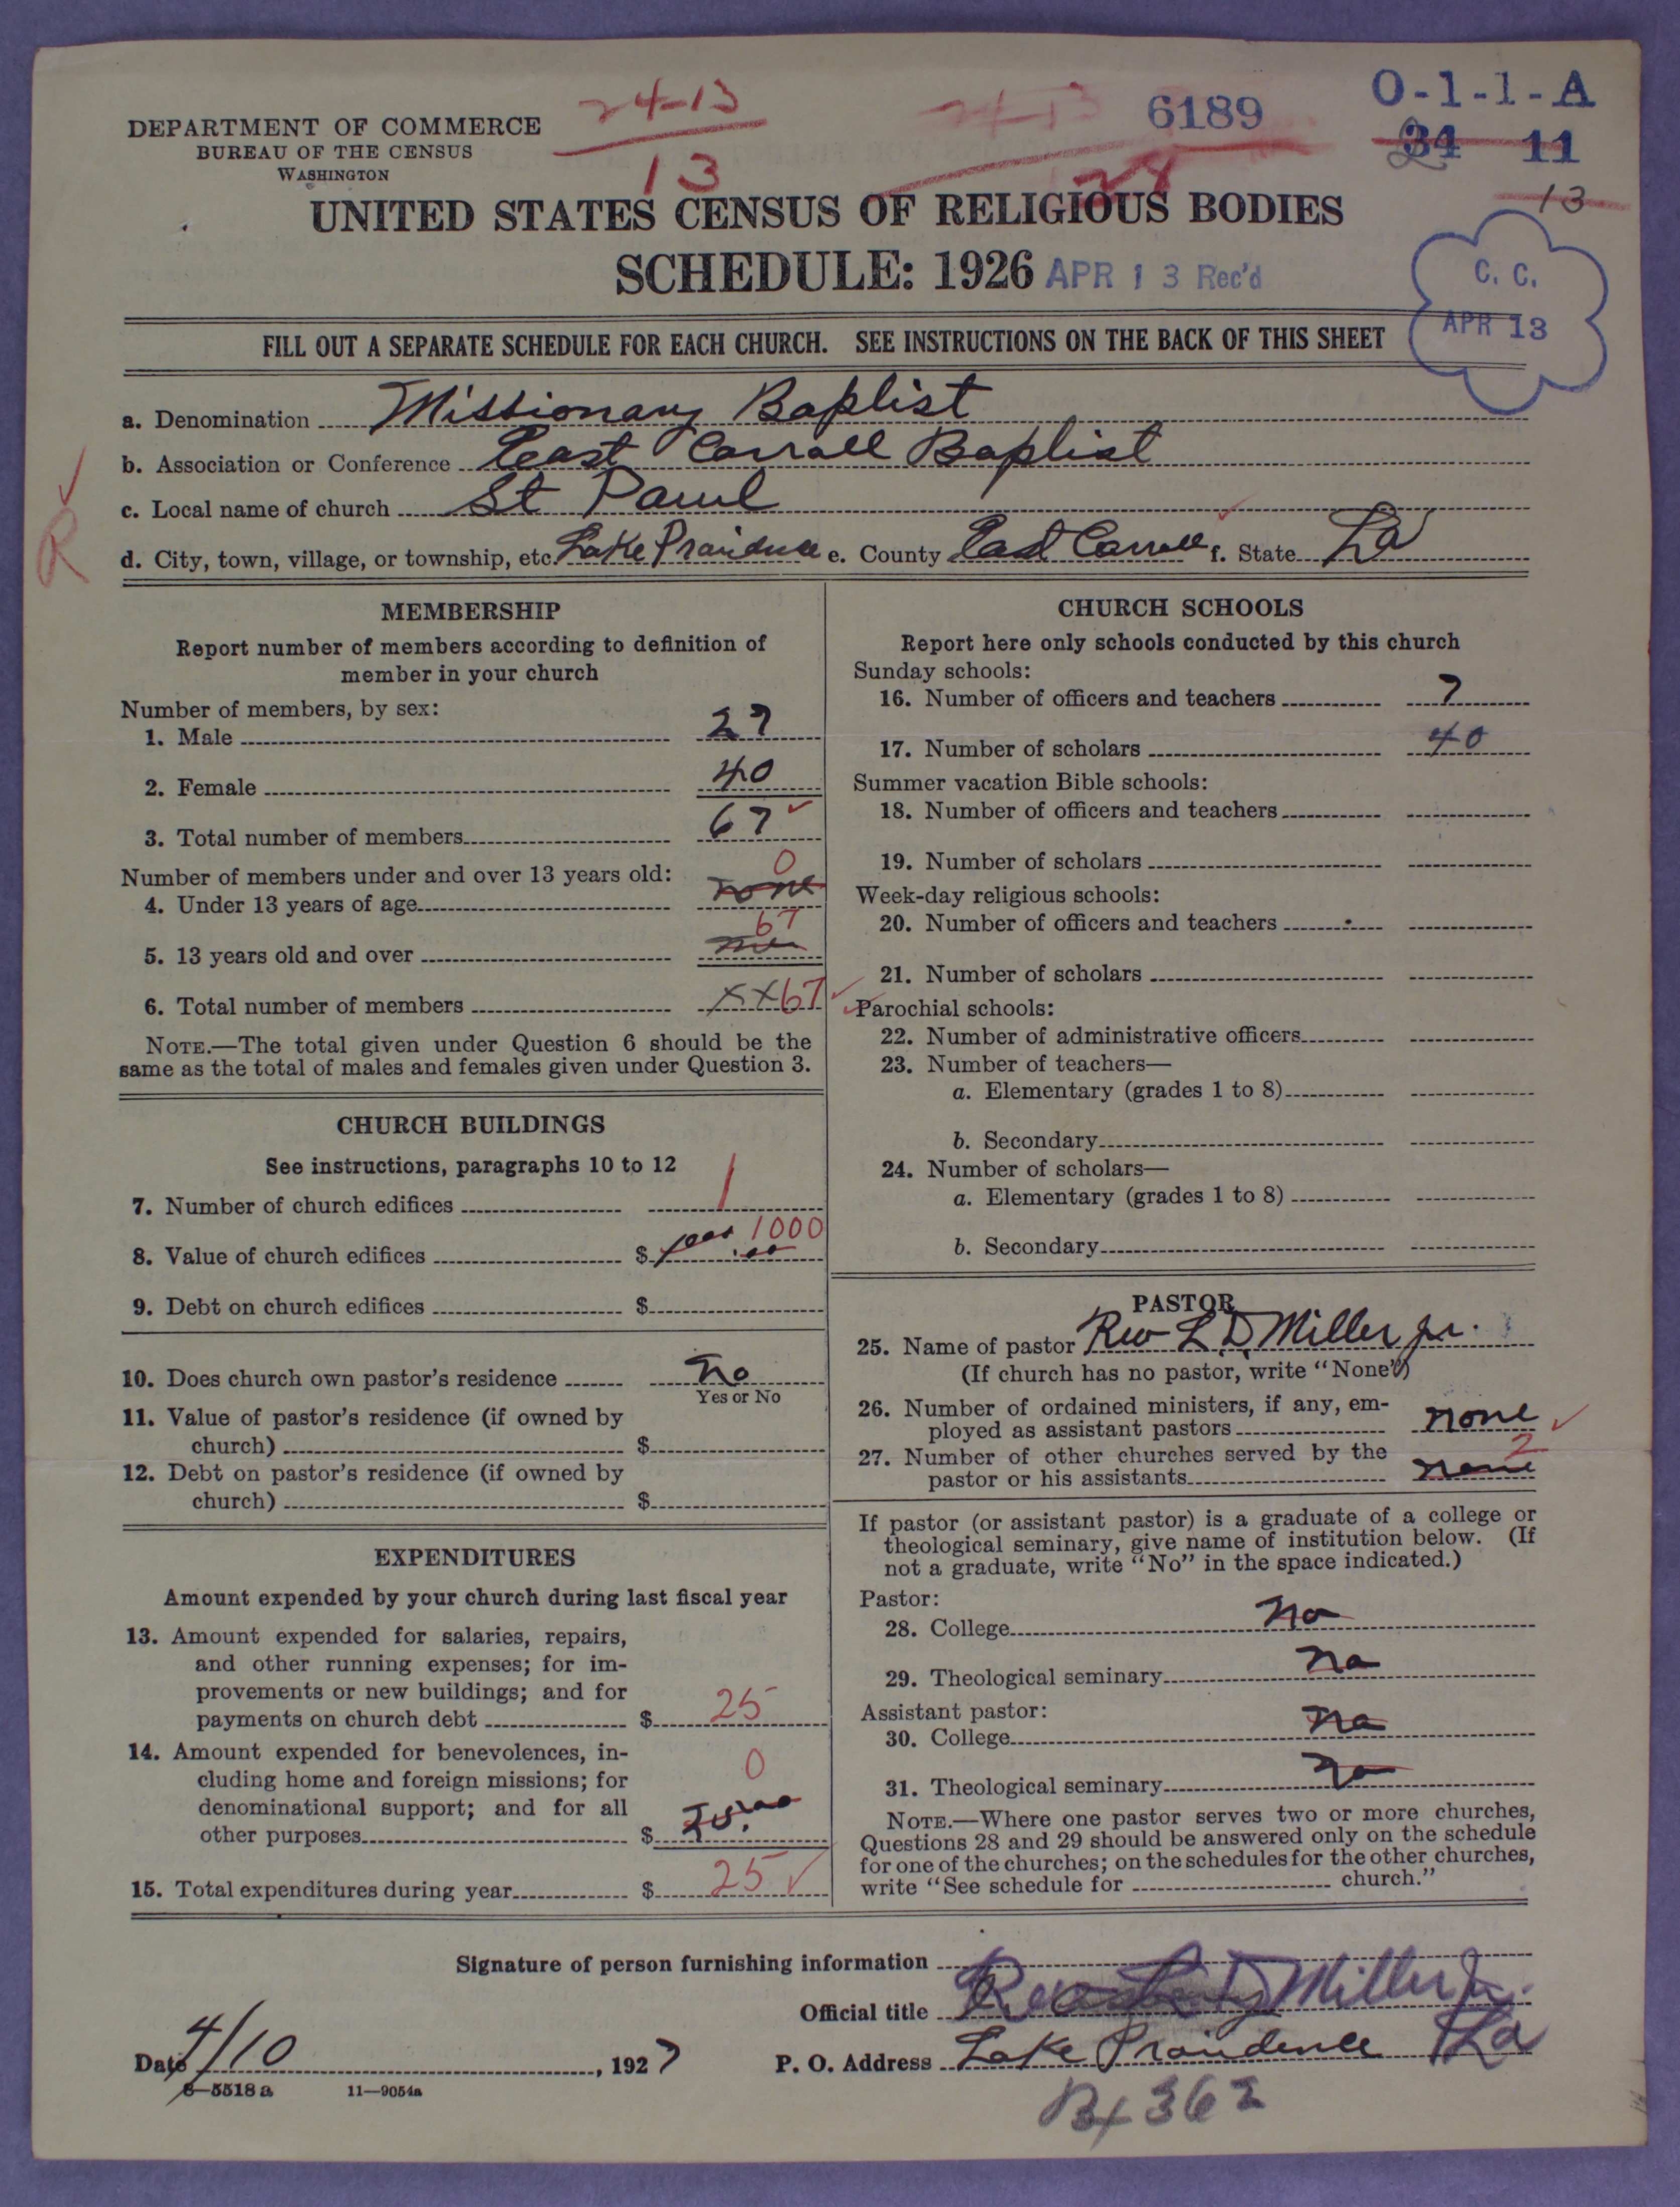 24-13
13
24-13
28
6189
O-1-1-A
34 11
13
DEPARTMENT OF COMMERCE
BUREAU OF THE CENSUS
WASHINGTON
UNITED STATES CENSUS OF RELIGIOUS BODIES
SCHEDULE: 1926 APR 13 Rec'd
C. C.
APR 13
FILL OUT A SEPARATE SCHEDULE FOR EACH CHURCH. SEE INSTRUCTIONS ON THE BACK OF THIS SHEET
a. Denomination Missionary Baptist
b. Association or Conference East Carroll Baptist
c. Local name of church St Paul
R
d. City, town, village, or township, etc. Lake Providence e. County East Carroll f. State La
MEMBERSHIP
Report number of members according to definition of
member in your church
Number of members, by sex:
1. Male 27
2. Female 40
3. Total number of members 67
Number of members under and over 13 years old:
4. Under 13 years of age none 0
5. 13 years old and over 67
6. Total number of members xx67
NOTE.—The total given under Question 6 should be the
same as the total of males and females given under Question 3.
CHURCH BUILDINGS
See instructions, paragraphs 10 to 12
7. Number of church edifices 1
8. Value of church edifices $ 1000
9. Debt on church edifices $
10. Does church own pastor's residence no
Yes or No
11. Value of pastor's residence (if owned by
church) $
12. Debt on pastor's residence (if owned by
church) $
EXPENDITURES
Amount expended by your church during last fiscal year
13. Amount expended for salaries, repairs,
and other running expenses; for im-
provements or new buildings; and for
payments on church debt $ 25
14. Amount expended for benevolences, in-
cluding home and foreign missions; for
denominational support; and for all
other purposes $ 0 25.00
15. Total expenditures during year $ 25
CHURCH SCHOOLS
Report here only schools conducted by this church
Sunday schools:
16. Number of officers and teachers 7
17. Number of scholars 40
Summer vacation Bible schools:
18. Number of officers and teachers
19. Number of scholars
Week-day religious schools:
20. Number of officers and teachers
21. Number of scholars
Parochial schools:
22. Number of administrative officers
23. Number of teachers—
a. Elementary (grades 1 to 8)
b. Secondary
24. Number of scholars—
a. Elementary (grades 1 to 8)
b. Secondary
PASTOR
25. Name of pastor Rev L D Miller jr.
(If church has no pastor, write "None")
26. Number of ordained ministers, if any, em-
ployed as assistant pastors none
27. Number of other churches served by the
pastor or his assistants none 2
If pastor (or assistant pastor) is a graduate of a college or
theological seminary, give name of institution below. (If
not a graduate, write "No" in the space indicated.)
Pastor:
28. College no
29. Theological seminary no
Assistant pastor:
30. College no
31. Theological seminary no
NOTE.—Where one pastor serves two or more churches,
Questions 28 and 29 should be answered only on the schedule
for one of the churches; on the schedules for the other churches,
write "See schedule for church."
Signature of person furnishing information
Official title Rev L D Miller Jr.
Date 4/10, 1927 P. O. Address Lake Providence La
8-5518a 11-9054a
Bx 362